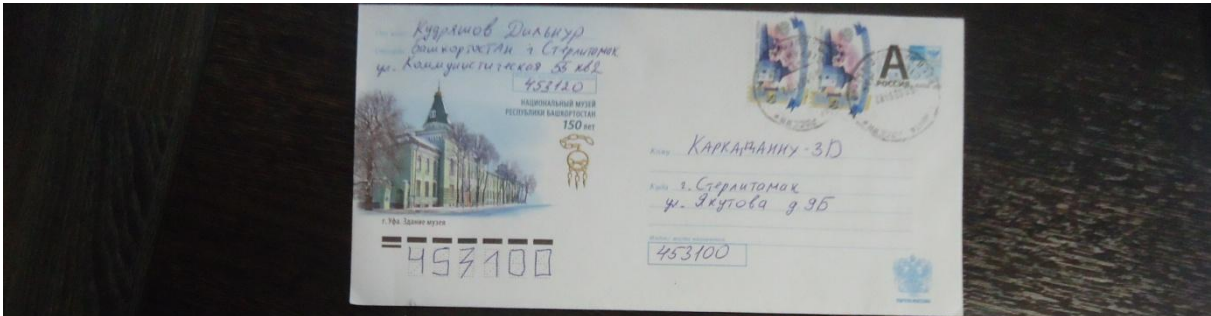 Кудряшов Дильнур
Башкортостан г Стерлитамак
ул. Коммунистическая 55 кв2
453120
НАЦИОНАЛЬНЫЙ МУЗЕЙ
РЕСПУБЛИКИ БАШКОРТОСТАН
150 лет
г. Уфа. Здание музея
453100
А
РОССИЯ
Кому КАРКАДАННУ-3D
Куда г. Стерлитамак
ул. Якутова д 9Б
453100